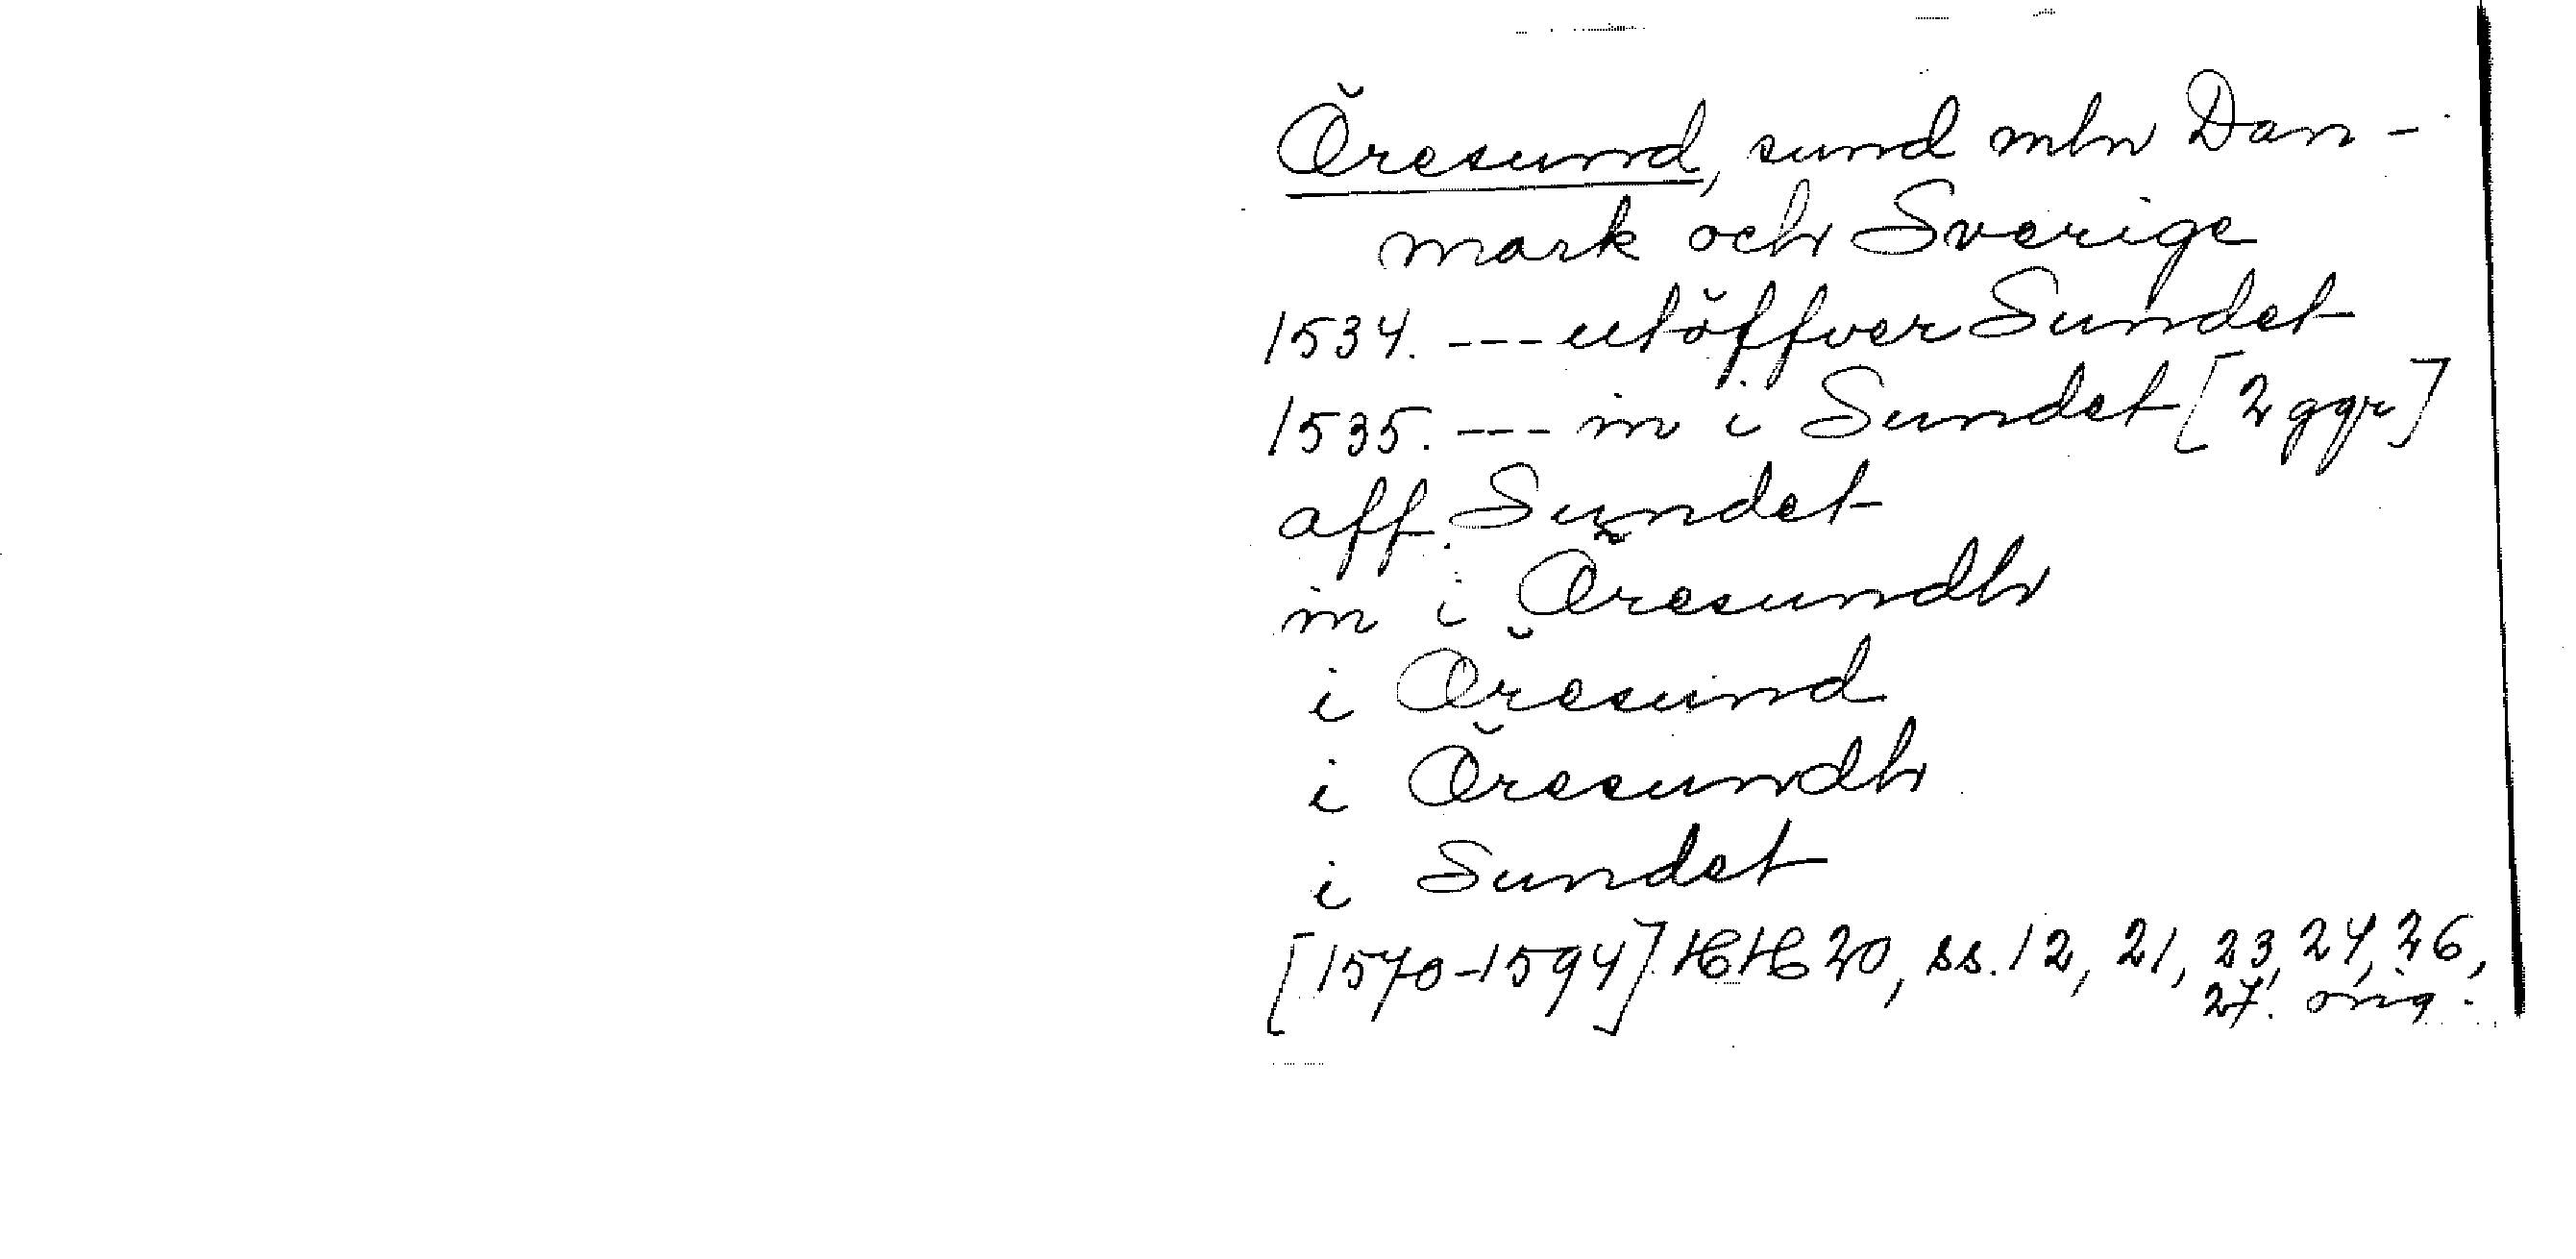 Öresund, sund mln Dan-
mark och Sverige
1534. --- utöffver Sundet
1535. --- in i Sundet [2 ggr]
aff Sundet
in i Öresundh
i Öresund
i Öresundh
i Sundet
[1570-1594] HH 20, ss. 12, 21, 23, 24, 26,
27. orig.